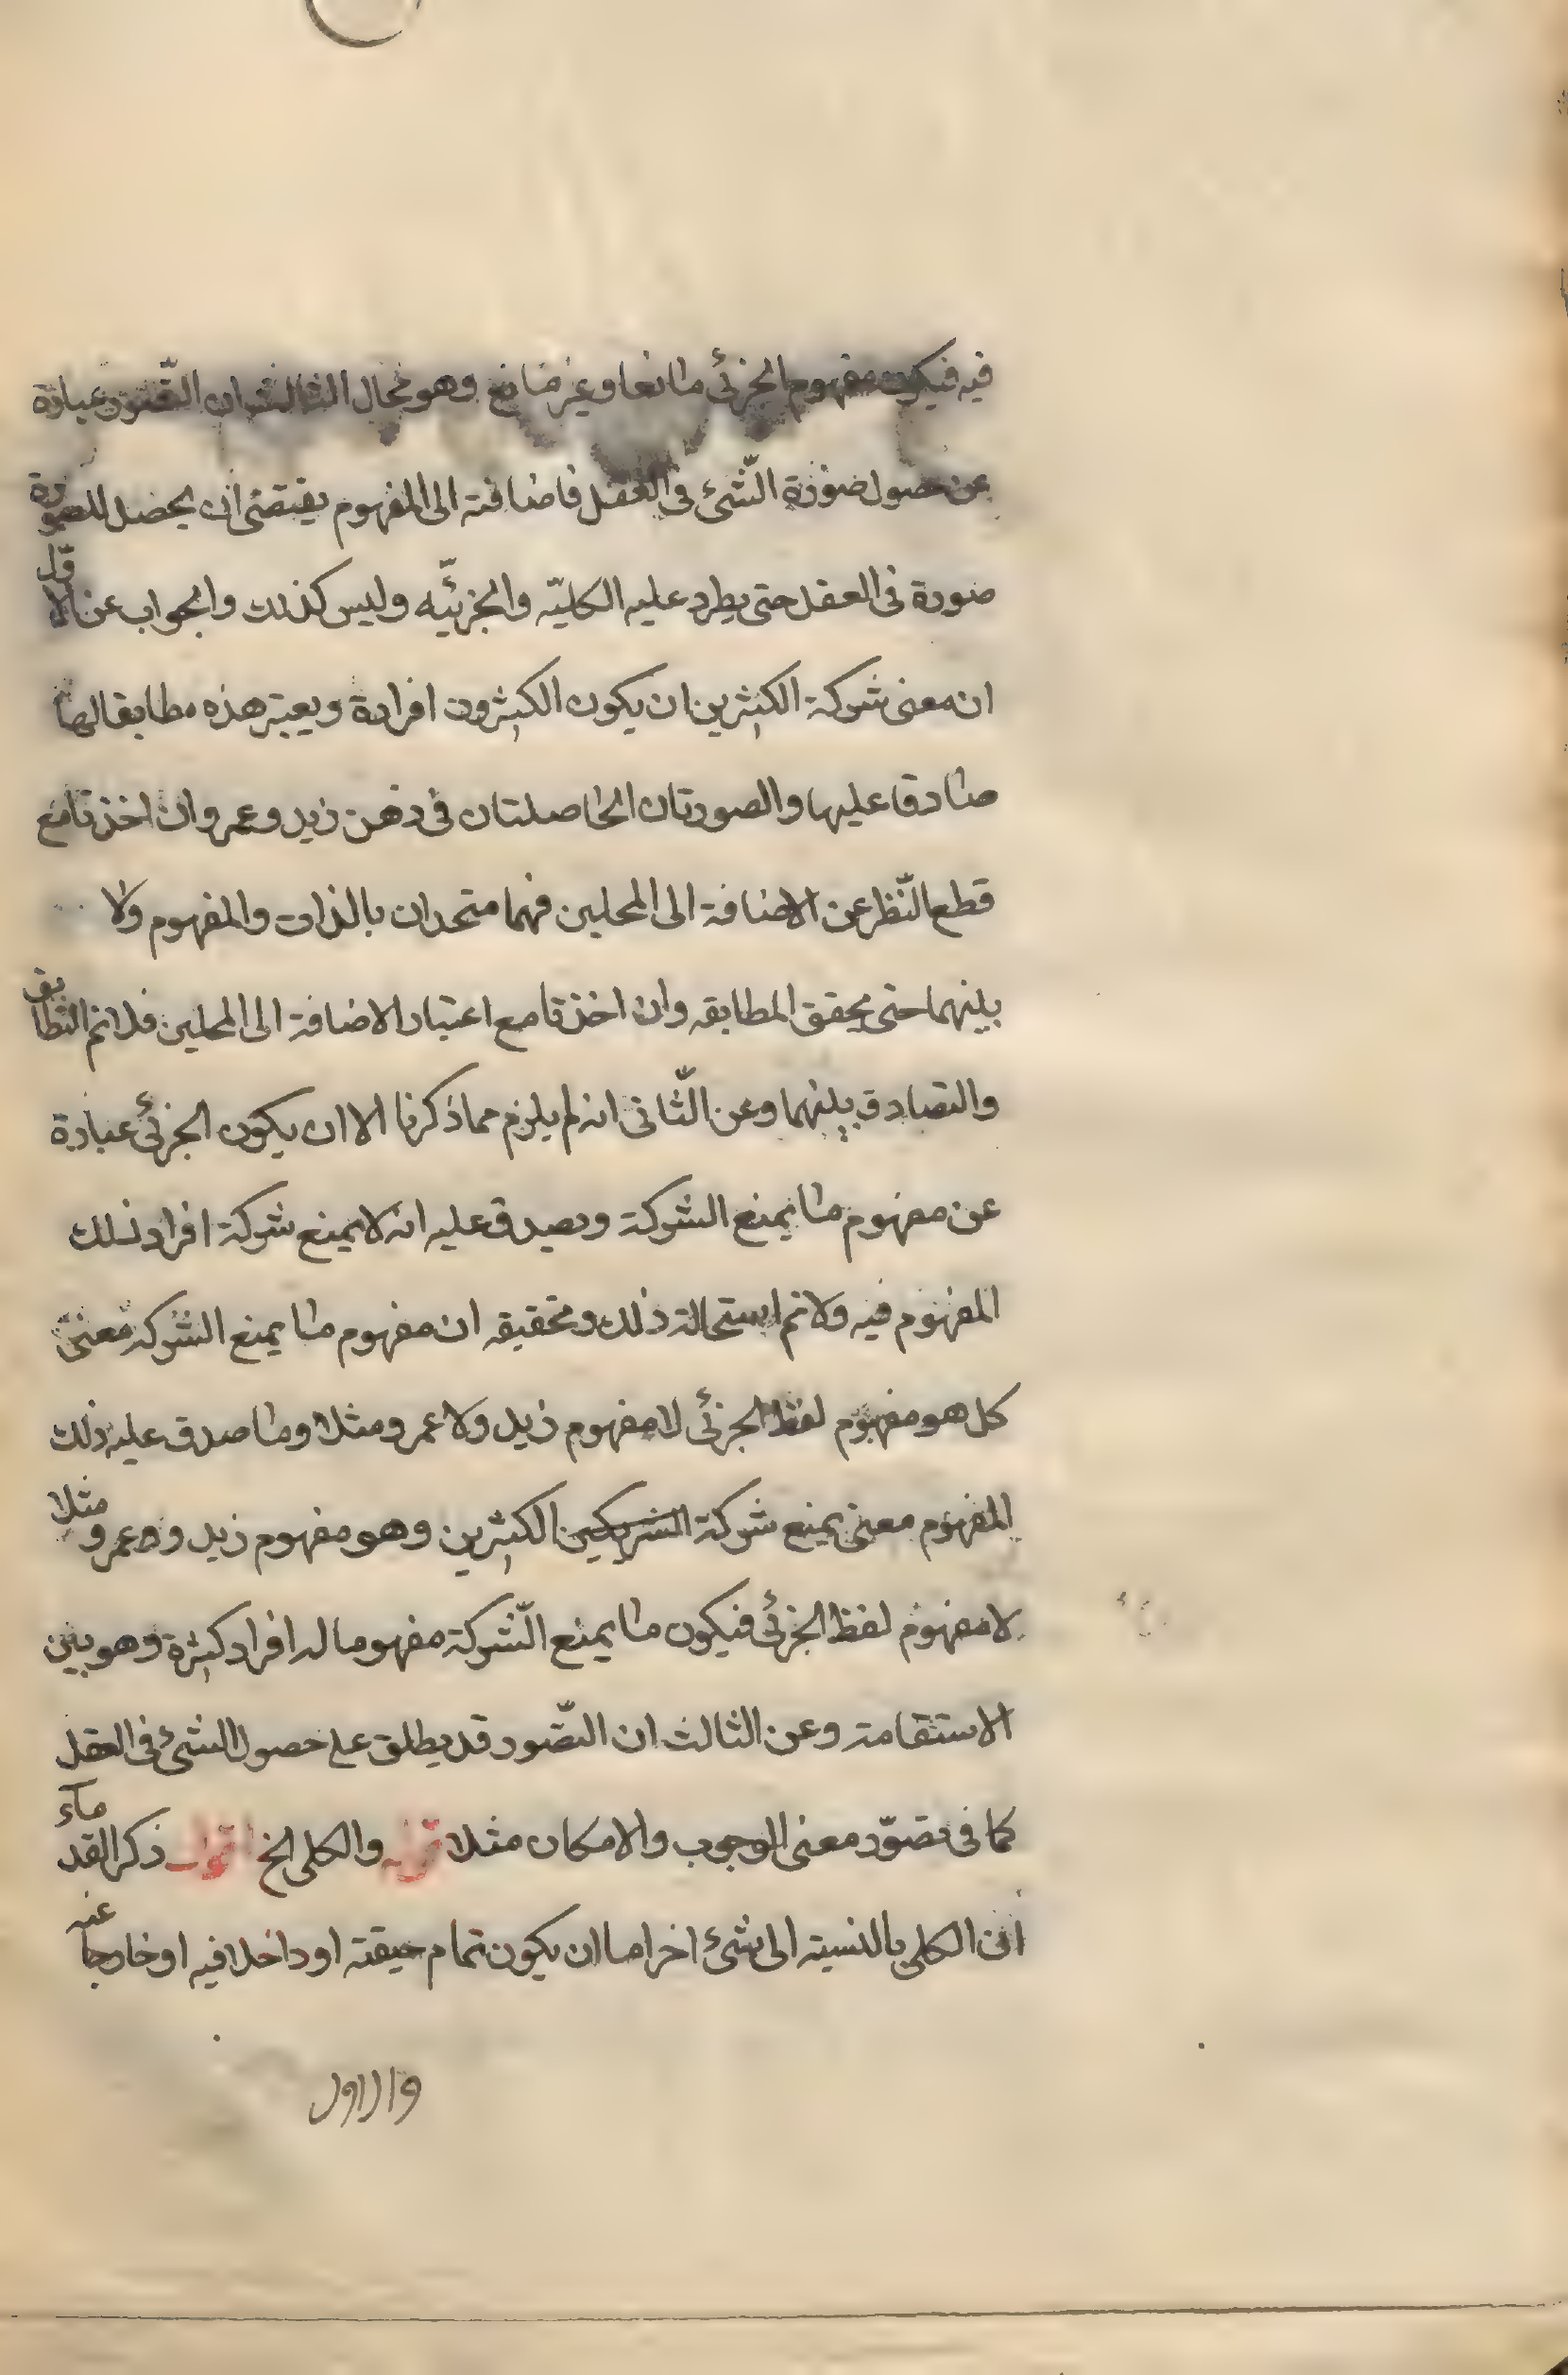 فيه فيكون مفهوم الجزئى مانعا وغير مانع وهو محال الثالث ان التصور عبارة
عن حصول صورة الشئ فى العقل فاضافته الى المفهوم يقتضى ان يحصل للصورة
صورة فى العقل حتى يطرد عليه الكليّه والجزئيّه وليس كذلك والجواب عن الاوّل
ان معنى شركة الكثيرين ان يكون الكثيرون افراده ويعتبر هذه مطابقا لها
صادقا عليها والصورتان الحاصلتان فى ذهن زيد وعمرو ان اخذتا مع
قطع النّظر عن الاضافة الى المحلين فهما متحدان بالذات والمفهوم ولا
بينهما حتى يحقق المطابقه وان اخذتا مع اعتبار الاضافة الى المحلين فلا نم التطابق
والتصادق بينهما وعن الثّانى انه لم يلزم مما ذكرنا الا ان يكون الجزئى عبارة
عن مفهوم ما يمنع الشركة ويصدق عليه انه لا يمنع شركة افراد ذلك
المفهوم فيه ولا نم استحالة ذلك وتحقيقه ان مفهوم ما يمنع الشركة معنى
كل هو مفهوم لفظ الجزئى لا مفهوم زيد ولا عمرو مثلا وما صدق عليه ذلك
المفهوم معنى يمنع شركة الشريكين الكثيرين وهو مفهوم زيد وعمرو مثلا
لا مفهوم لفظ الجزئى فيكون ما يمنع الشّركة مفهوما له افراد كثيرة وهو بين
الاستقامة وعن الثالث ان التصّور قد يطلق على حصول الشئ فى العقل
كما فى تصوّر معنى الوجوب والامكان مثلا قوله والكلى الخ اقول ذكر القدماء
ان الكلى بالنسبة الى شئ اخر اما ان يكون تمام حيقته او داخلا فيه او خارجا عنه
والاول